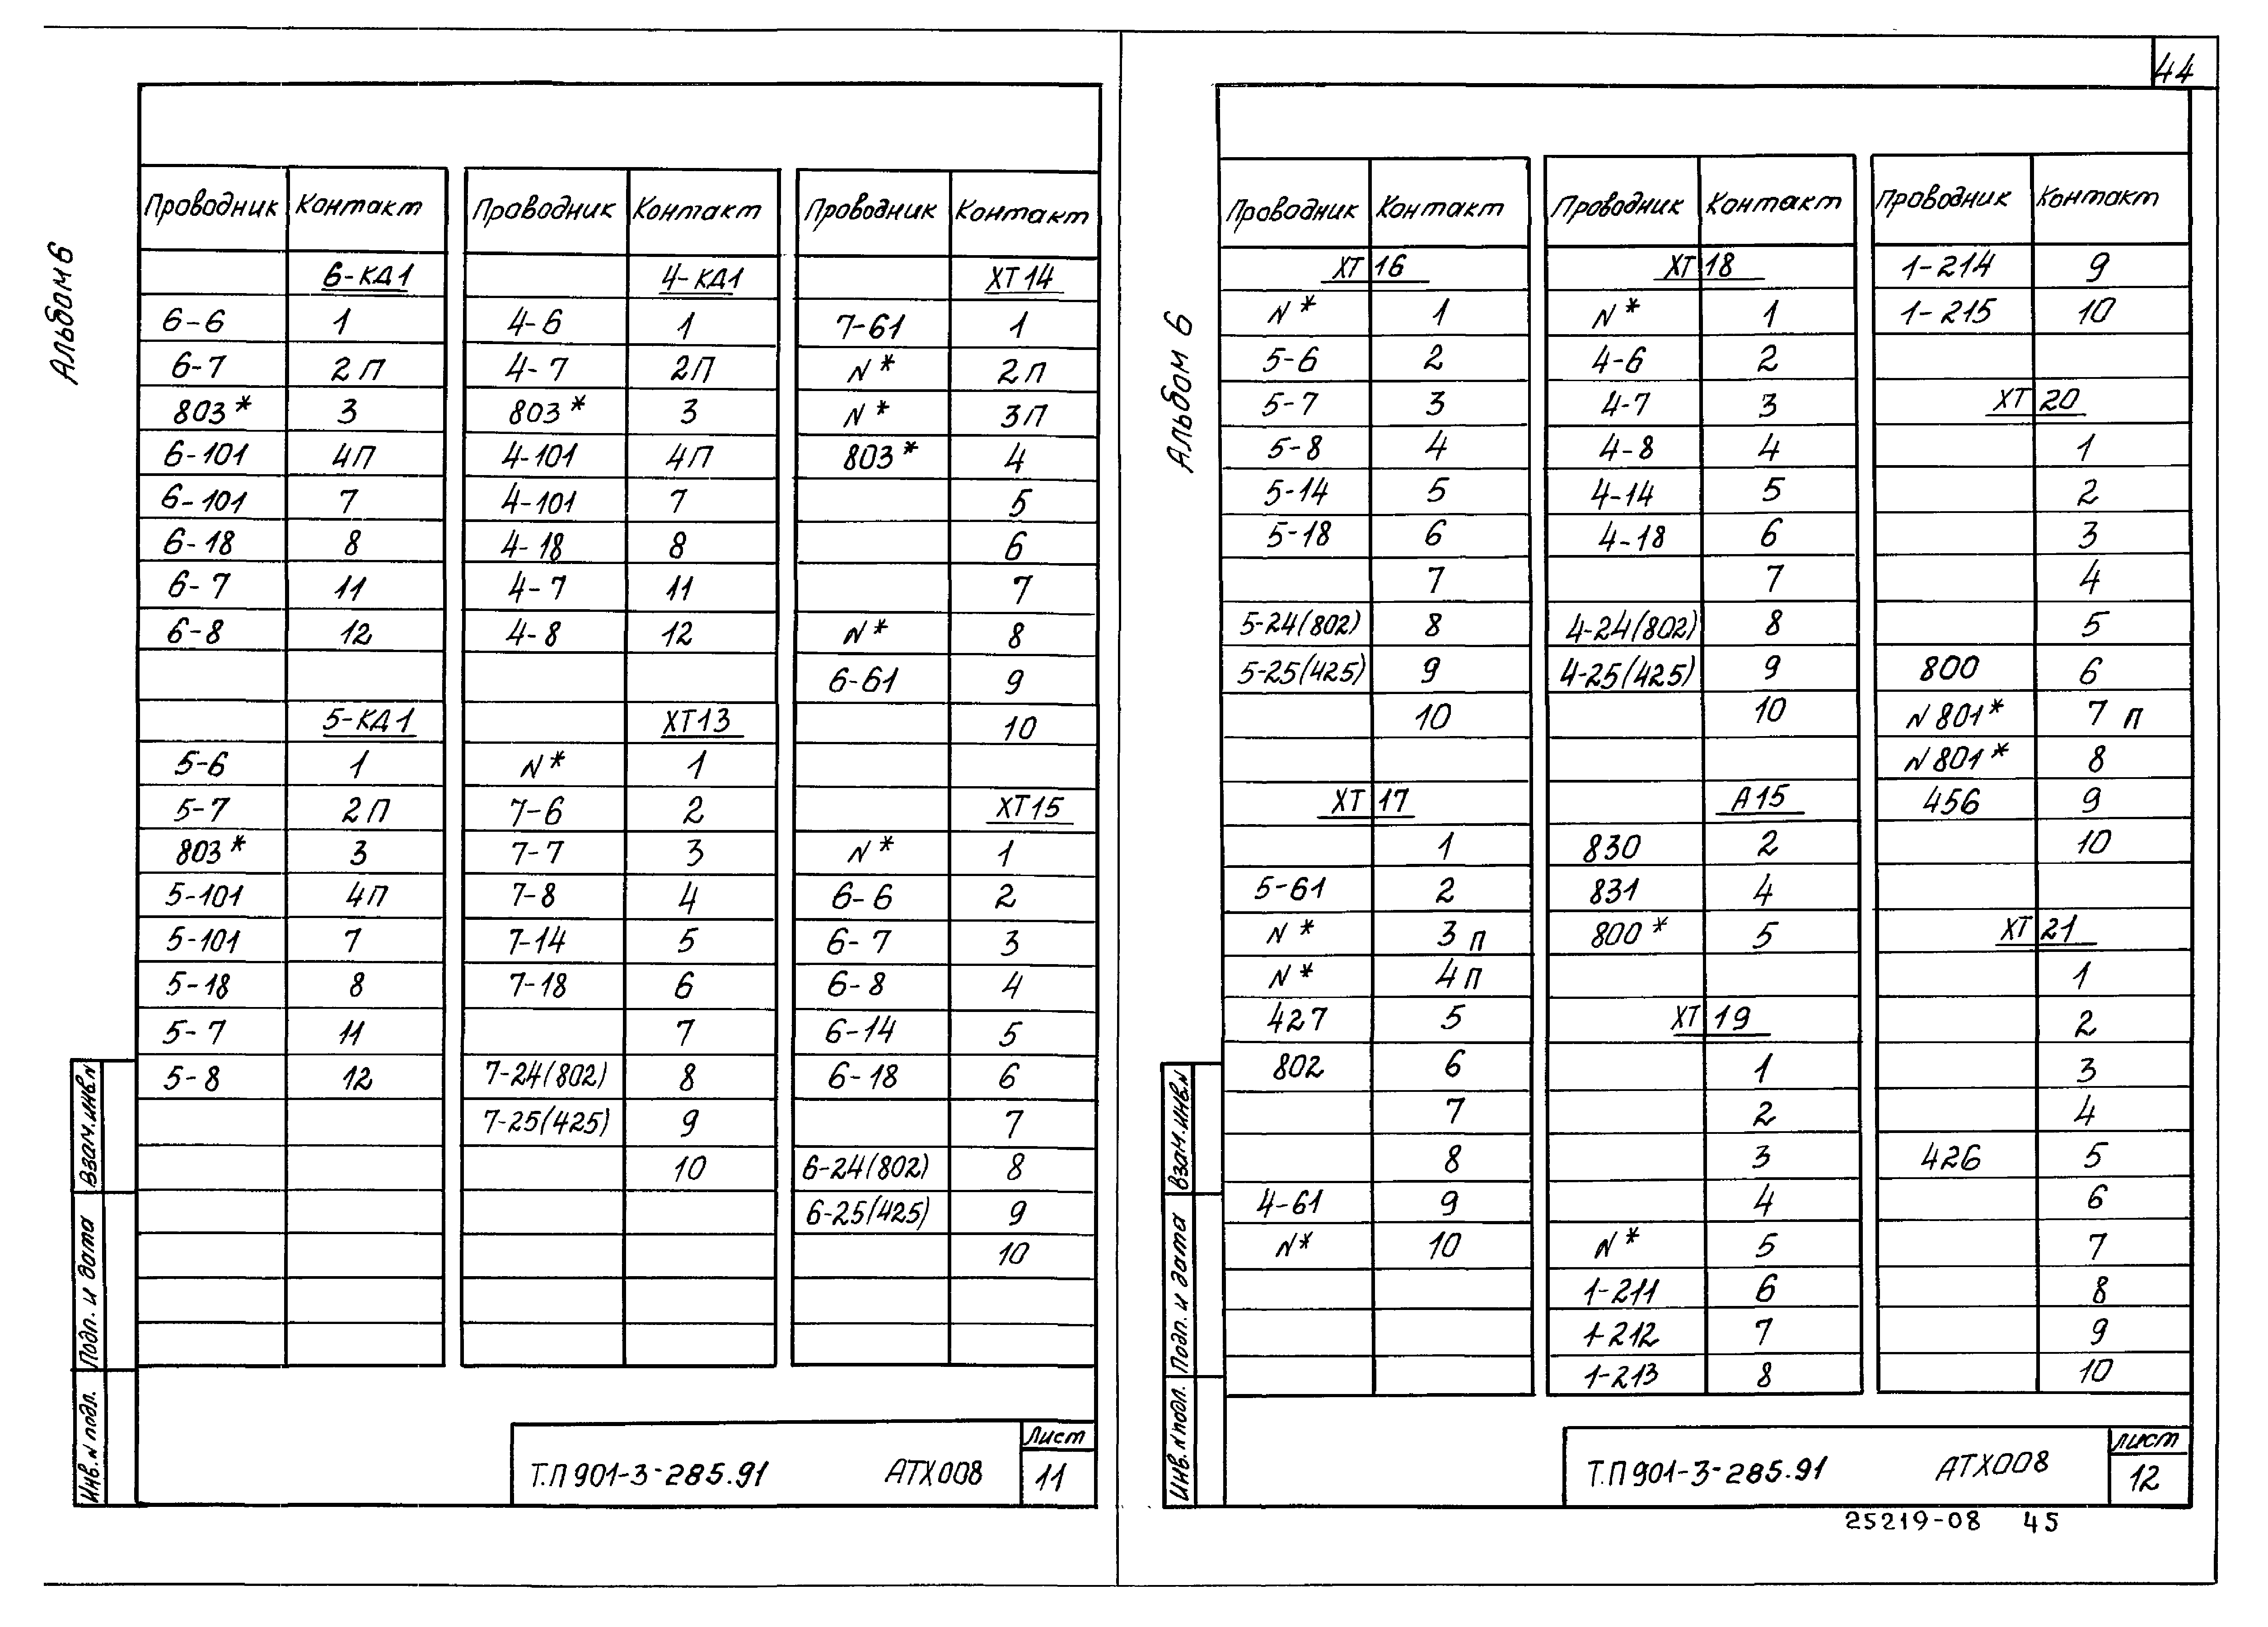 44
Альбом 6
Проводник Контакт Проводник Контакт Проводник Контакт
6-КД1 4-КД1 ХТ14
6-6 1 4-6 1 7-61 1
6-7 2П 4-7 2П N* 2П
803* 3 803* 3 N* 3П
6-101 4П 4-101 4П 803* 4
6-101 7 4-101 7 5
6-18 8 4-18 8 6
6-7 11 4-7 11 7
6-8 12 4-8 12 N* 8
6-61 9
5-КД1 ХТ13 10
5-6 1 N* 1
5-7 2П 7-6 2 ХТ15
803* 3 7-7 3 N* 1
5-101 4П 7-8 4 6-6 2
5-101 7 7-14 5 6-7 3
5-18 8 7-18 6 6-8 4
5-7 11 7 6-14 5
5-8 12 7-24(802) 8 6-18 6
7-25(425) 9 7
10 6-24(802) 8
6-25(425) 9
10
Взам.инв.N
Подп. и дата
Инв. N подл.
Т.П 901-3-285.91 АТХ008
Лист
11
Альбом 6
Проводник Контакт Проводник Контакт Проводник Контакт
ХТ 16 ХТ 18 1-214 9
N* 1 N* 1 1-215 10
5-6 2 4-6 2
5-7 3 4-7 3 ХТ 20
5-8 4 4-8 4 1
5-14 5 4-14 5 2
5-18 6 4-18 6 3
7 7 4
5-24(802) 8 4-24(802) 8 5
5-25(425) 9 4-25(425) 9 800 6
10 10 N801* 7 П
N801* 8
ХТ 17 А15 456 9
1 830 2 10
5-61 2 831 4
N* 3 П 800* 5 ХТ 21
N* 4П 1
427 5 ХТ 19 2
802 6 1 3
7 2 4
8 3 426 5
4-61 9 4 6
N* 10 N* 5 7
1-211 6 8
1-212 7 9
1-213 8 10
Взам.инв.N
Подп. и дата
Инв. N подл.
Т.П 901-3-285.91 АТХ008
Лист
12
25219-08 45